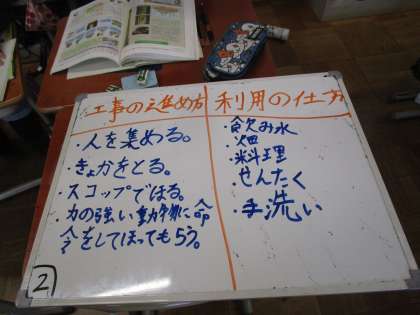 工事の進め方
・人を集める。
・きょかをとる。
・スコップでほる。
・力の強い動物に命
令をしてほってもらう。
利用の仕方
・飲み水
・畑
・料理
・せんたく
・手洗い
2